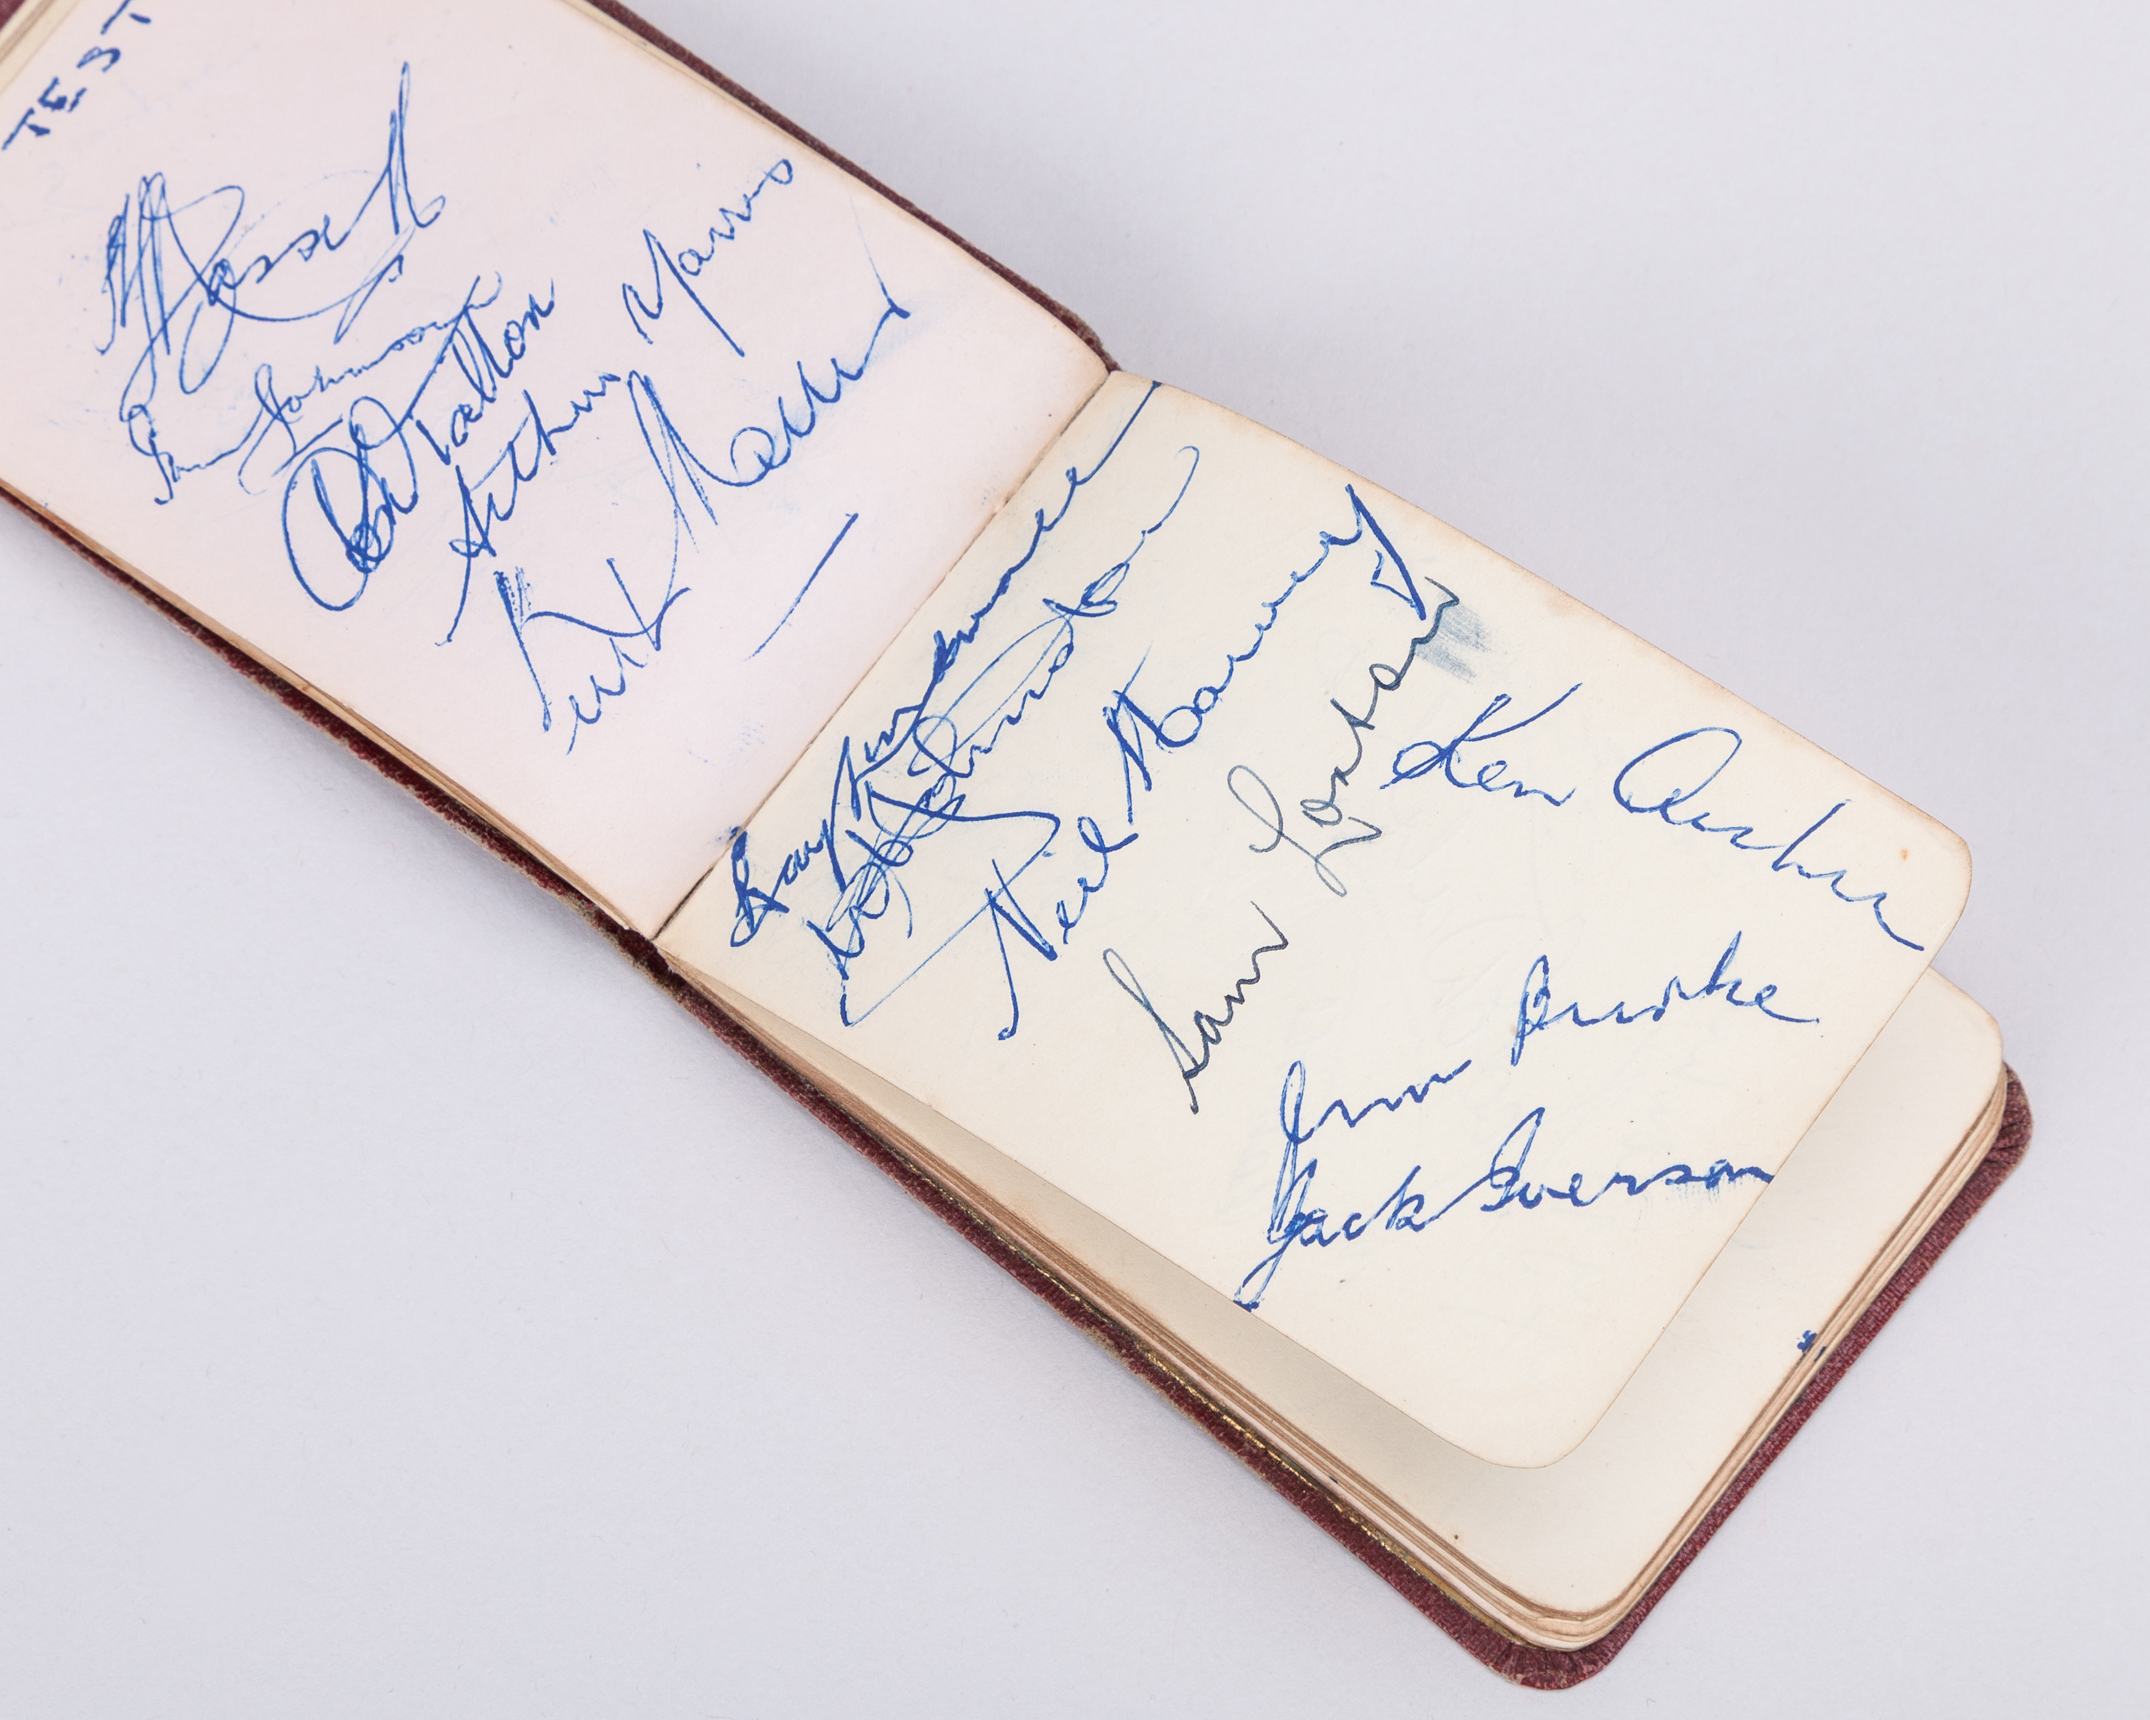 TEST
A L Hassett
Ian Johnson
Ron Hatton
Arthur Morris
Keith Miller
Ray Lindwall
W A Johnston
Neil Harvey
Sam Loxton
Ken Archer
Jim Burke
Jack Iverson